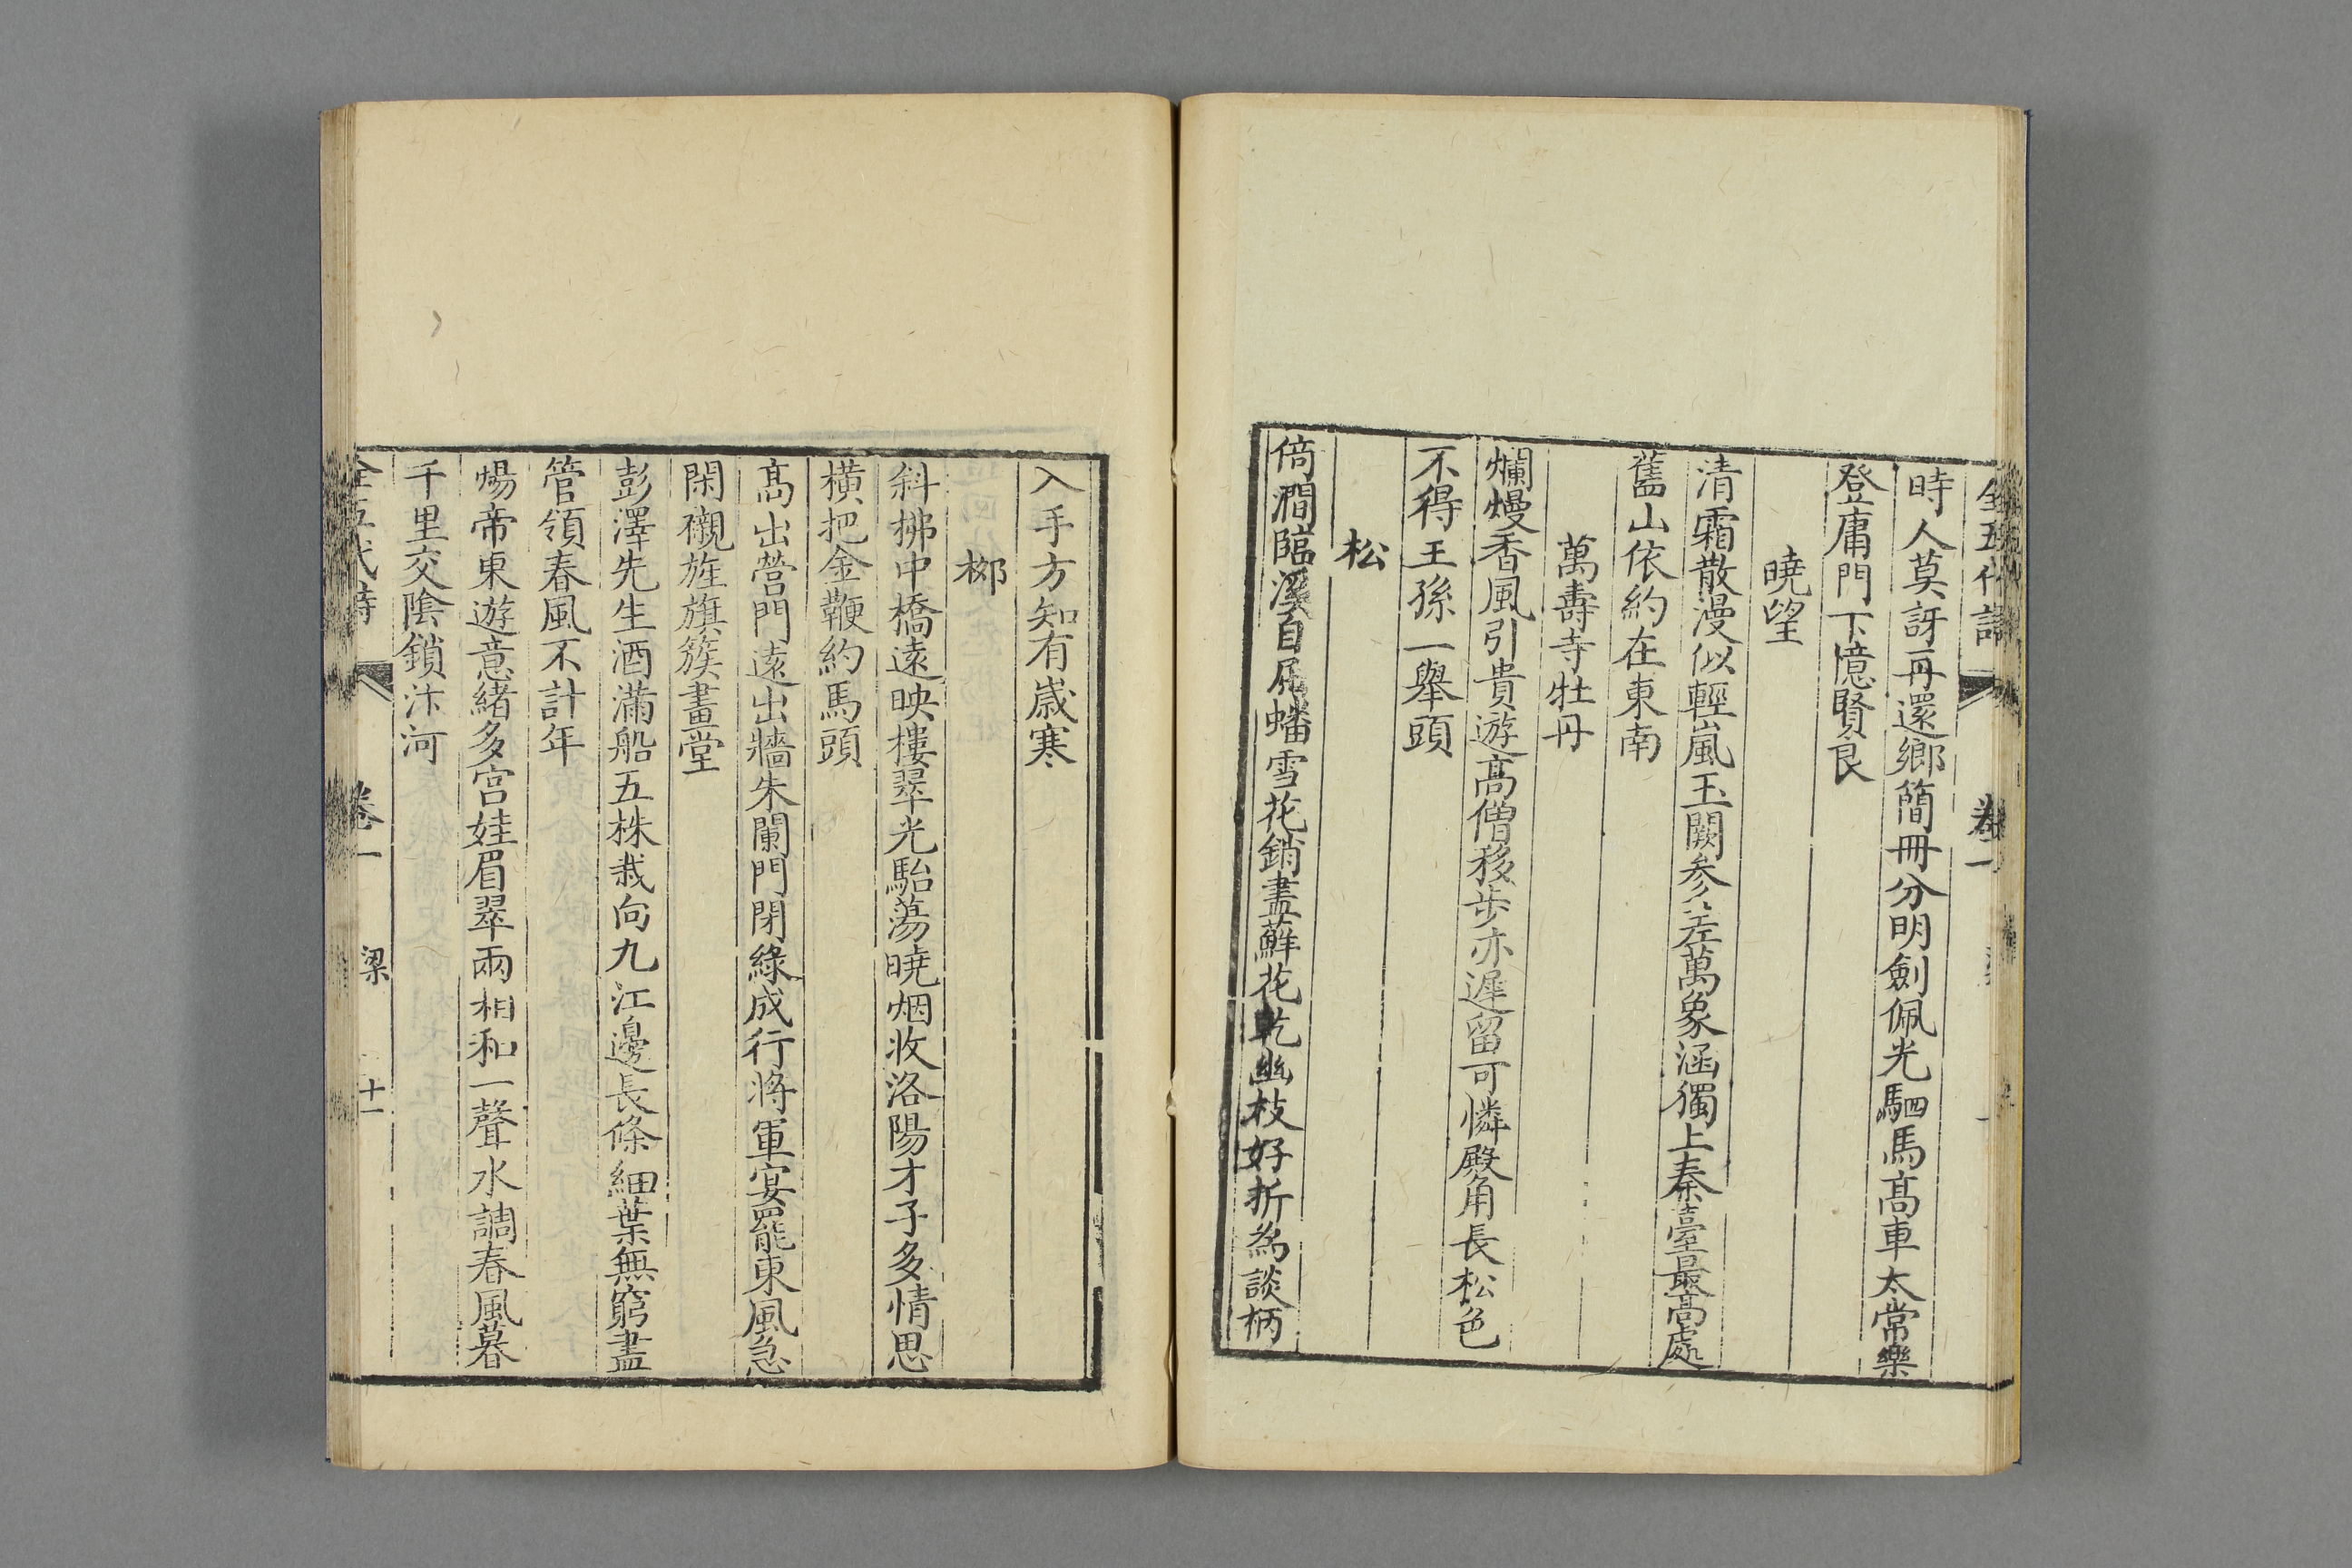 全五代詩 卷一
時人莫訝再還鄉簡冊分明劍佩光駟馬高車太常樂
登庸門下憶賢良
曉望
清霜散漫似輕嵐玉闕參差萬象涵獨上秦臺最高處
舊山依約在東南
萬壽寺牡丹
爛熳香風引貴遊高僧移步亦遲留可憐殿角長松色
不得王孫一舉頭
松
倚澗臨溪自屈蟠雪花銷盡蘚花乾幽枝好折為談柄
入手方知有歲寒
柳
斜拂中橋遠映樓翠光駘蕩曉烟收洛陽才子多情思
橫把金鞭約馬頭
高出營門遠出牆朱闌門閉綠成行將軍宴罷東風急
閑襯旌旗簇畫堂
彭澤先生酒滿船五株栽向九江邊長條細葉無窮盡
管領春風不計年
煬帝東遊意緒多宮娃眉翠兩相和一聲水調春風暮
千里交陰鎖汴河
全五代詩 卷一 梁 十一